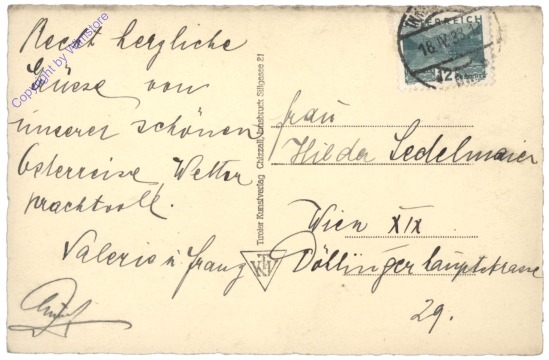 Recht herzliche
Grüsse von
unserer schönen
Osterreise. Wetter
prachtvoll.
Valerie u. Franz
Copyright by wamstore
Tiroler Kunstverlag Chizzali, Innsbruck Sillgasse 21
TKV
ÖSTERREICH
18.IV.33
12
Frau
Hilda Sedelmaier
Wien XIX
Döblinger Hauptstrasse
29.